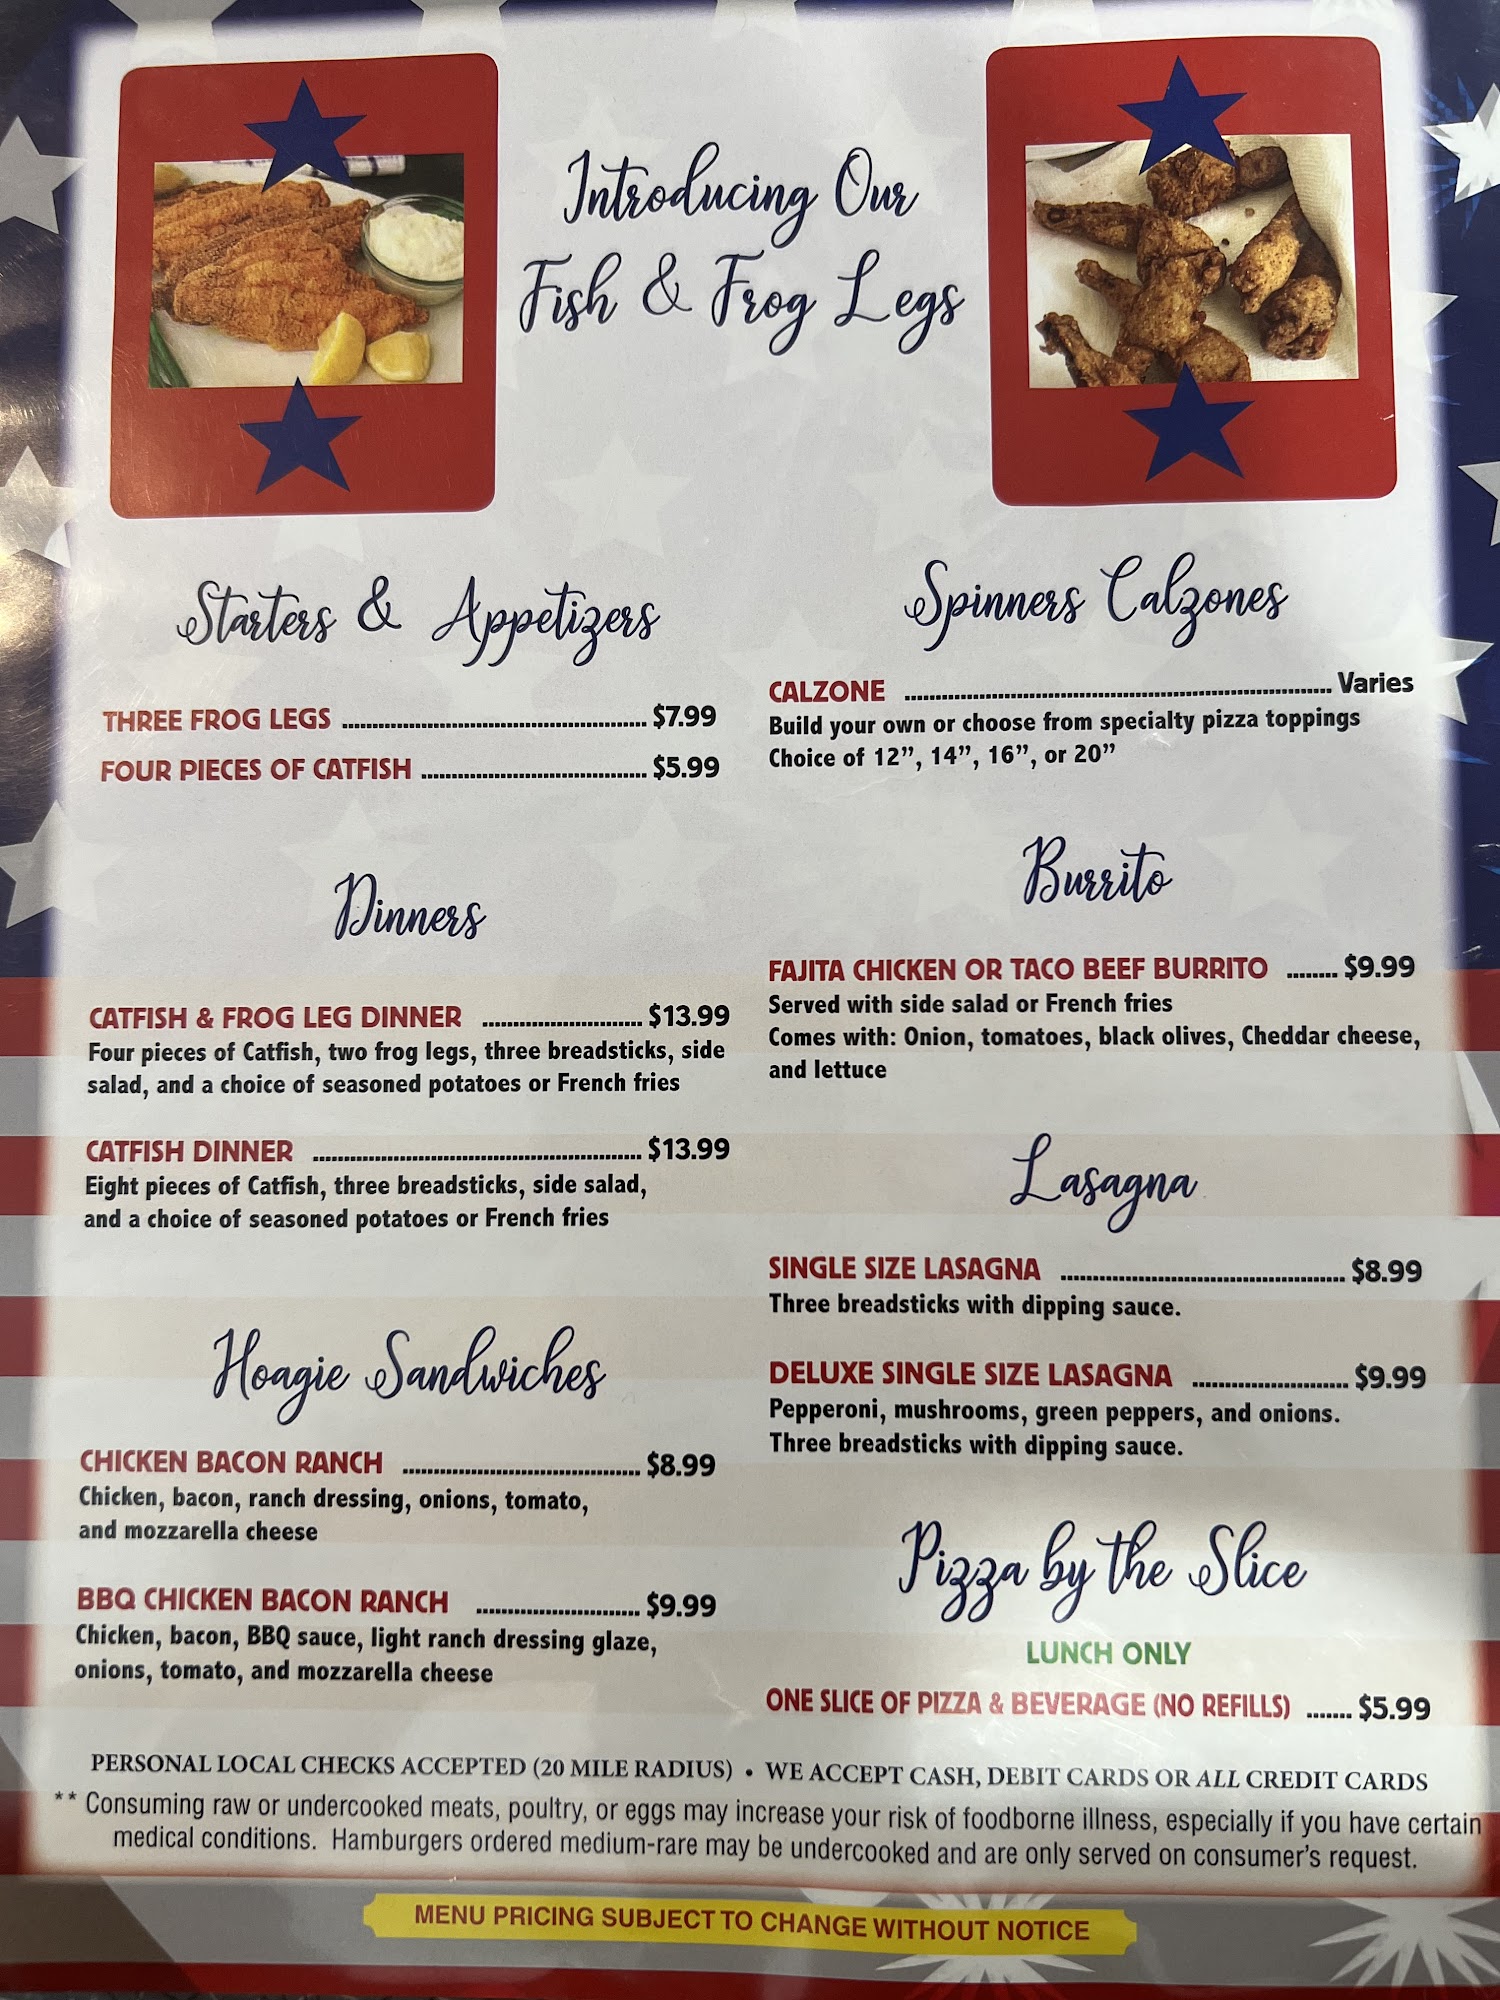 Introducing Our
Fish & Frog Legs
Starters & Appetizers
THREE FROG LEGS ........ $7.99
FOUR PIECES OF CATFISH ........ $5.99
Dinners
CATFISH & FROG LEG DINNER ........ $13.99
Four pieces of Catfish, two frog legs, three breadsticks, side
salad, and a choice of seasoned potatoes or French fries
CATFISH DINNER ........ $13.99
Eight pieces of Catfish, three breadsticks, side salad,
and a choice of seasoned potatoes or French fries
Hoagie Sandwiches
CHICKEN BACON RANCH ........ $8.99
Chicken, bacon, ranch dressing, onions, tomato,
and mozzarella cheese
BBQ CHICKEN BACON RANCH ........ $9.99
Chicken, bacon, BBQ sauce, light ranch dressing glaze,
onions, tomato, and mozzarella cheese
Spinners Calzones
CALZONE ........ Varies
Build your own or choose from specialty pizza toppings
Choice of 12”, 14”, 16”, or 20”
Burrito
FAJITA CHICKEN OR TACO BEEF BURRITO ........ $9.99
Served with side salad or French fries
Comes with: Onion, tomatoes, black olives, Cheddar cheese,
and lettuce
Lasagna
SINGLE SIZE LASAGNA ........ $8.99
Three breadsticks with dipping sauce.
DELUXE SINGLE SIZE LASAGNA ........ $9.99
Pepperoni, mushrooms, green peppers, and onions.
Three breadsticks with dipping sauce.
Pizza by the Slice
LUNCH ONLY
ONE SLICE OF PIZZA & BEVERAGE (NO REFILLS) ....... $5.99
PERSONAL LOCAL CHECKS ACCEPTED (20 MILE RADIUS) • WE ACCEPT CASH, DEBIT CARDS OR ALL CREDIT CARDS
** Consuming raw or undercooked meats, poultry, or eggs may increase your risk of foodborne illness, especially if you have certain
medical conditions. Hamburgers ordered medium-rare may be undercooked and are only served on consumer's request.
MENU PRICING SUBJECT TO CHANGE WITHOUT NOTICE